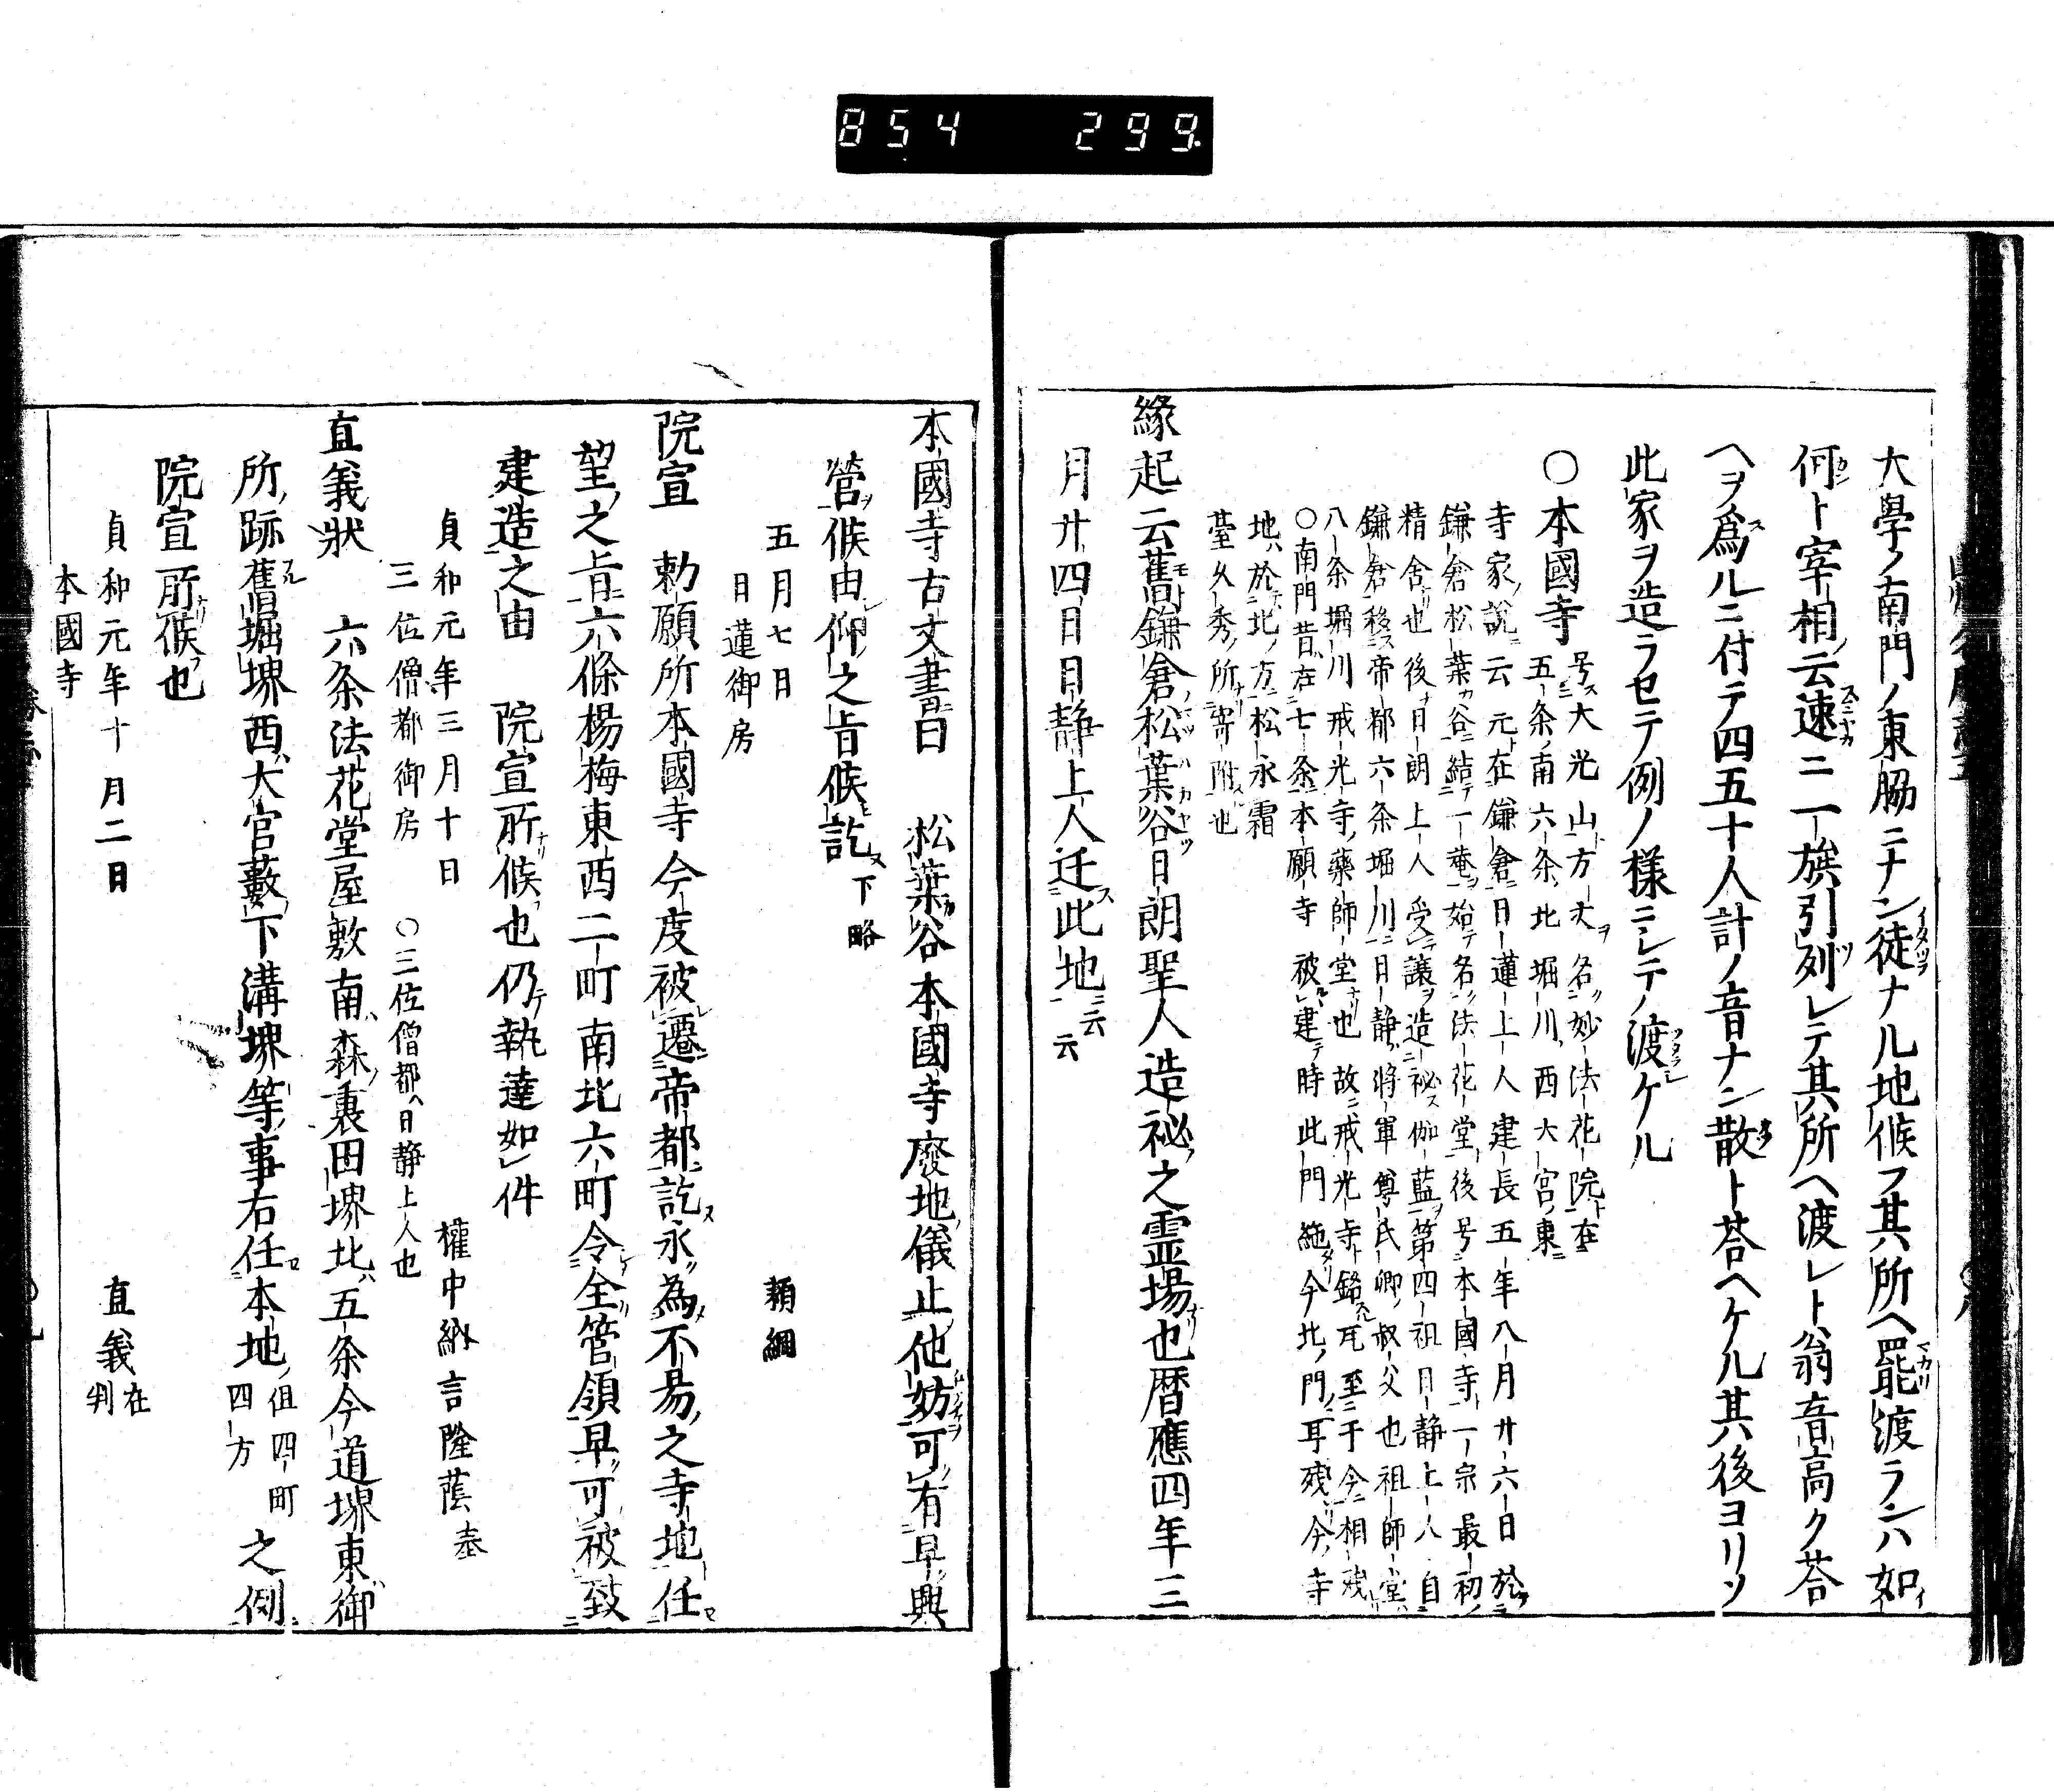 854 299.
大學ノ南門ノ東脇ニナン徒ナル地候フ其所ヘ罷渡ランハ如
何ト宰相云速ニ一族引列レテ其所ヘ渡レト翁音高ク荅
ヘヲ爲ルニ付テ四五十人計ノ音ナン散ト荅ヘケル其後ヨリソ
此家ヲ造ラセテ例ノ様ニシテノ渡ケル
〇本國寺
号大光山方丈名妙法花院在
五条南六条北堀川西大宮東
寺家説云元在鎌倉日蓮上人建長五年八月廿六日於
鎌倉松葉谷結一菴始名法花堂後号本國寺一宗最初
精舎也後日朗上人受讓造祕伽藍第四祖日静上人自
鎌倉移帝都六条堀川日静將軍尊氏卿叔父也祖師堂
八条堀川戒光寺藥師堂也故戒光寺銘瓦至于今相殘
〇南門昔在七条本願寺被建時此門絁今北門耳殘今寺
地於北方松永霜
臺久秀所寄附也
緣起云舊鎌倉松葉谷日朗聖人造祕之霊場也暦應四年三
月廿四日日静上人迁此地云云
本國寺古文書曰 松葉谷本國寺廢地儀止他妨可有早興
營候由仰之旨候訖下略
五月七日 頼綱
日蓮御房
院宣 勅願所本國寺今度被遷帝都訖永為不易之寺地任
望之旨六條楊梅東西二町南北六町令全管領早可被致
建造之由 院宣所候也仍執達如件
貞和元年三月十日 權中納言隆蔭奉
三位僧都御房 〇三位僧都日静上人也
直義狀 六条法花堂屋敷南森裏田堺北五条今道堺東御
所跡舊堀堺西大官藪下溝堺等事右任本地但四町四方之側
院宣所候也
貞和元年十月二日 直義在判
本國寺